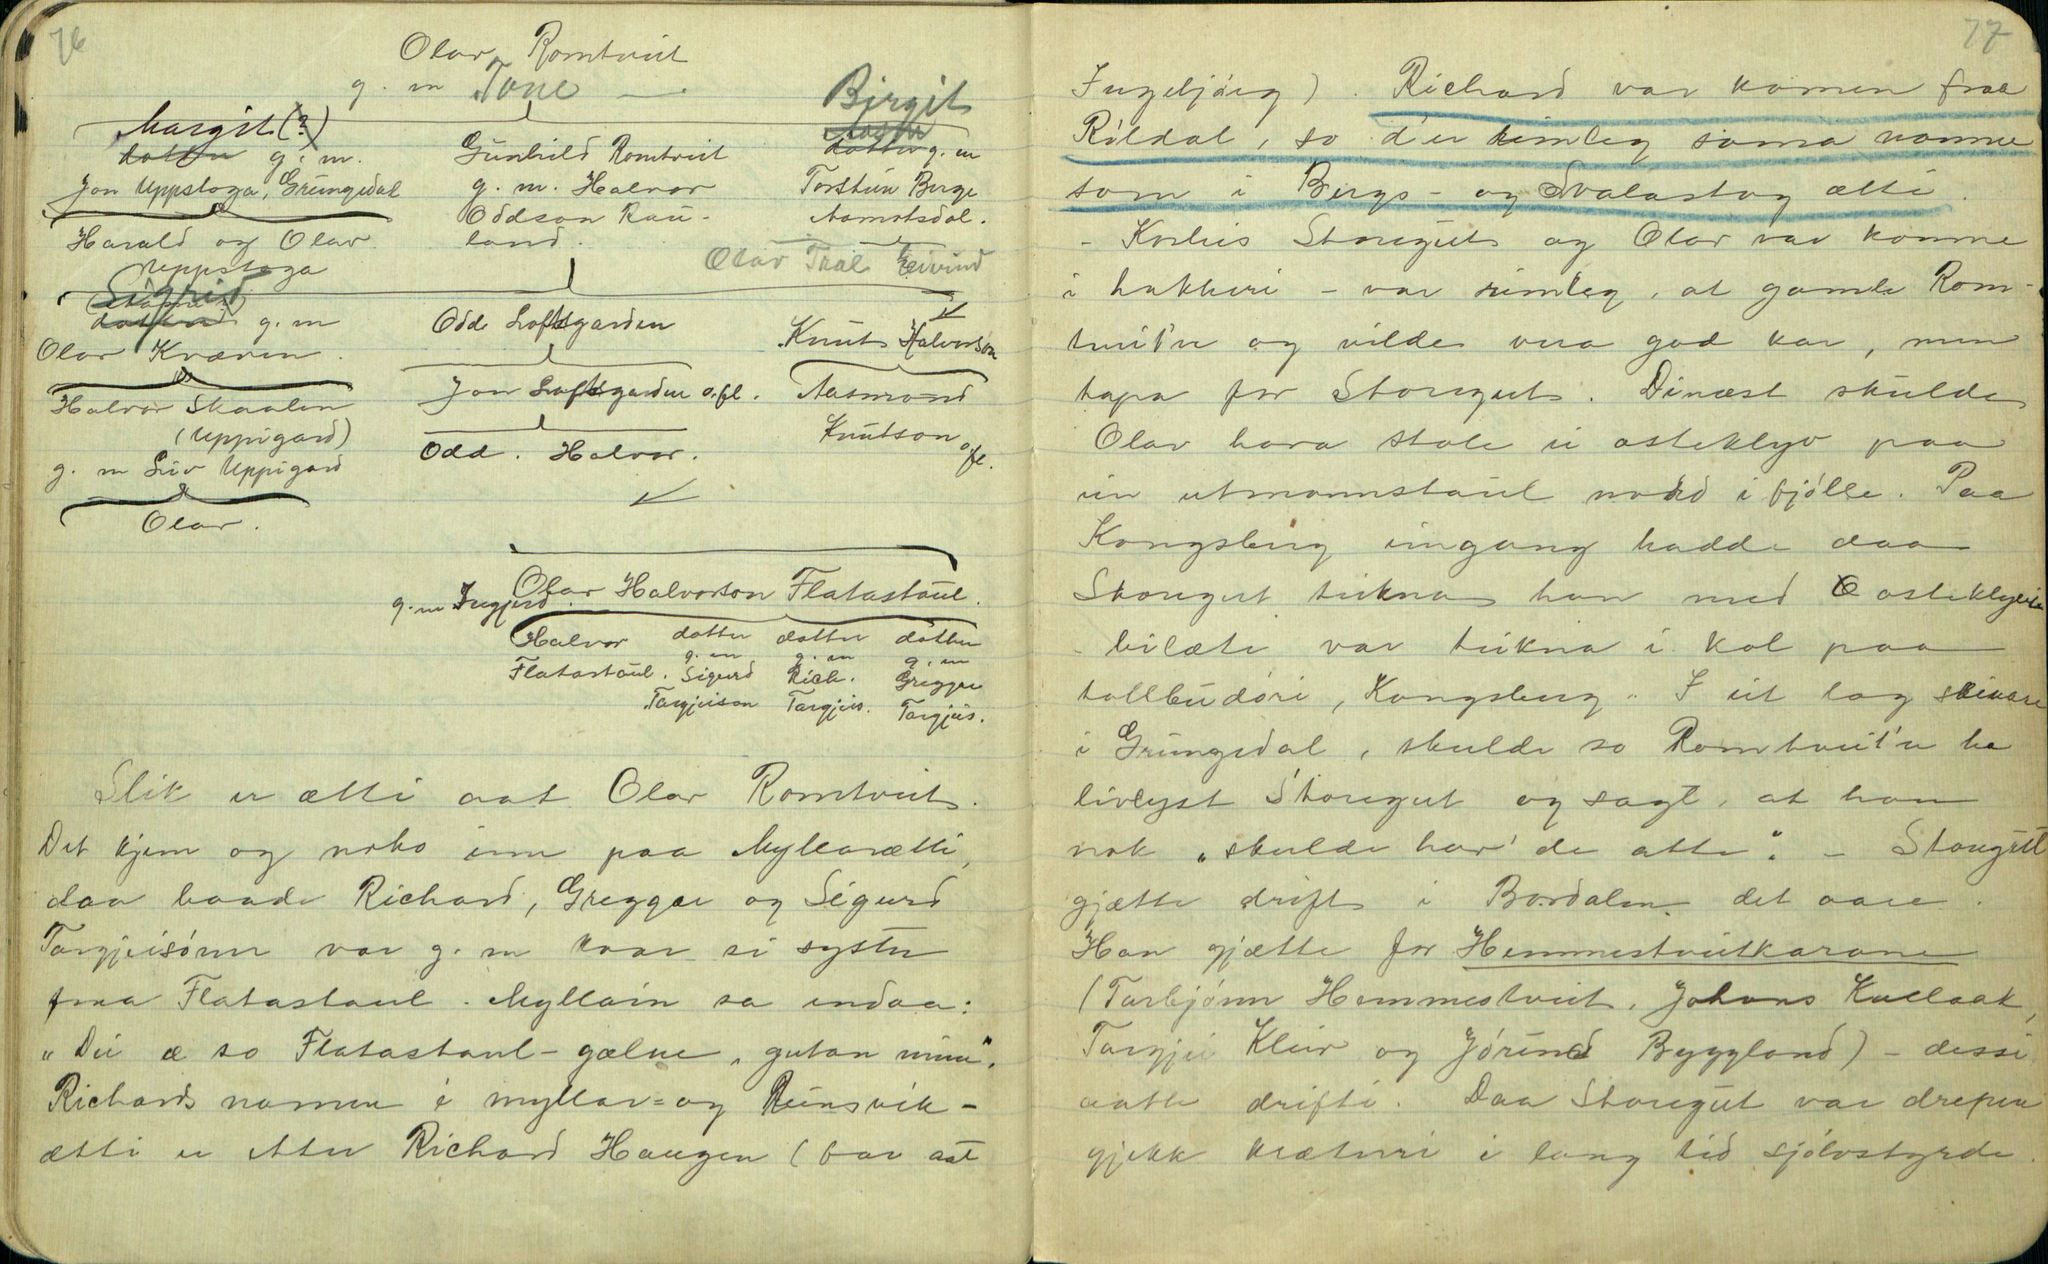 76
Olav Romtveit
g. m Tone —.
Margit (?)
dotter g. m.
Jon Uppstoga, Grungedal
Harald og Olav
Uppstoga
Gunhild Romtveit
g. m. Halvor
Oddson Rau-
land.
Birgit
dotter g. m
Torstein Berge
Aamotsdal.
Olav Tral Eivind
Sigrid
dotter g. m
Olav Kværen.
Halvor Skaalen
(Uppigard)
g. m Liv Uppigard
Olav.
Odd Loftsgarden
Jon Loftsgarden o.fl.
Odd. Halvor.
Knut Halvorson
Aasmund
Knutson o.fl.
Olav Halvorson Flatastaul.
g. m Ingjerd
Halvor dotter dotter dotter
g. m g. m g. m
Flatastaul. Sigurd Rich. Greggar
Targjeison Targjeis. Targjeis.
Slik er ætti aat Olav Romtveit.
Det kjem og noko inn paa Myllarætti,
daa baade Richard, Greggar og Sigurd
Targjeisónn var g. m kvar si syster
fraa Flatastaul. Myllain sa endaa:
"Dei æ so Flatastaul-gælne, gutan mine".
Richards namnen i myllar= og Reinsvik-
ætti er etter Richard Haugen (far aat
77
Ingebjórg). Richard var komen fraa
Róldal, so d'er rimleg sama namne
som i Bergs- og Svalastog ætti.
- Korleis Storegut og Olav var komne
i hakkeri - var rimleg, at gamle Rom-
tveit'n og vilde vera god kar, men
tapa for Storegut. Dinæst skulde
Olav hava stole ei osteklyv paa
ein utmannstaul nord i fjólle. Paa
Kongsberg eingong hadde daa
Storegut teikna han med osteklyvi
- bilæte var teikna i kol paa
tollbudóri, Kongsberg. I eit lag seinare
i Grungedal, skulde so Romtveit'n ha
livlyst Storegut og sagt, at han
nok "skulde hav' de atte". - Storegut
gjætte drift i Bordalen det aare.
Han gjætte for Hemmestveitkarane
(Tarbjónn Hemmestveit, Johans Kullaak,
Targjei Kleiv og Jórund Byggland) - dessi
aatte drifti. Daa Storegut var drepen
gjekk kræturi i lang tid sjólvstyrde.